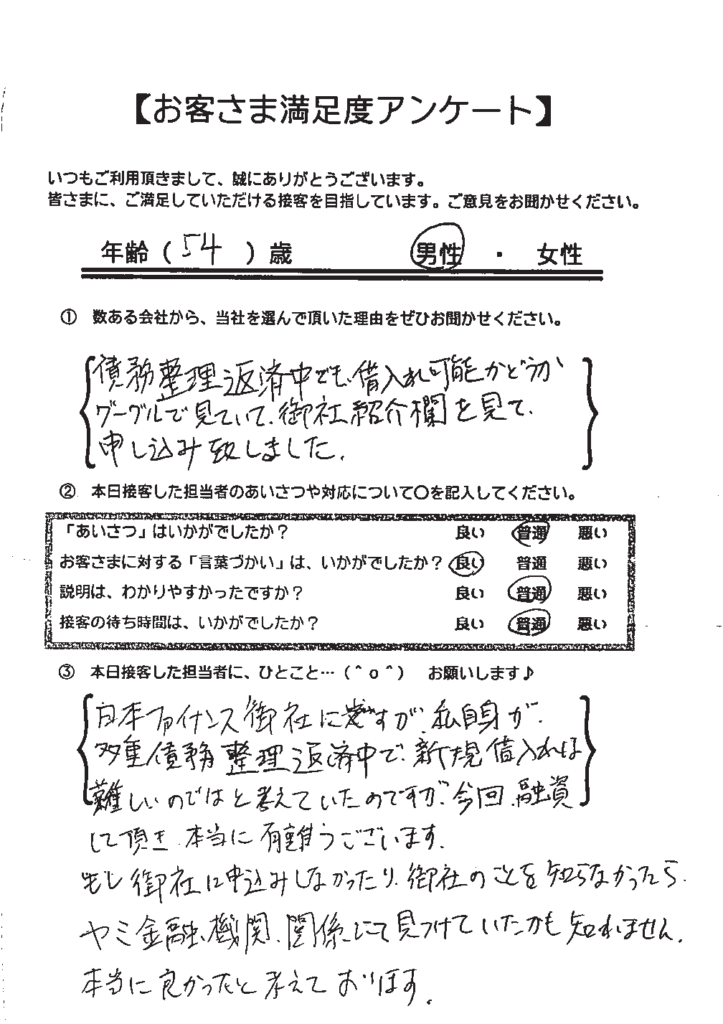 【お客さま満足度アンケート】
いつもご利用頂きまして、誠にありがとうございます。
皆さまに、ご満足していただける接客を目指しています。ご意見をお聞かせください。
年齢（ 54 ）歳　男性 ・ 女性
① 数ある会社から、当社を選んで頂いた理由をぜひお聞かせください。
債務整理返済中でも、借入れ可能かどうか
グーグルで見ていて、御社紹介欄を見て、
申し込み致しました。
② 本日接客した担当者のあいさつや対応について〇を記入してください。
「あいさつ」はいかがでしたか？　良い　普通　悪い
お客さまに対する「言葉づかい」は、いかがでしたか？　良い　普通　悪い
説明は、わかりやすかったですか？　良い　普通　悪い
接客の待ち時間は、いかがでしたか？　良い　普通　悪い
③ 本日接客した担当者に、ひとこと…（＾ｏ＾）　お願いします♪
日本ファイナンス御社にですが、私自身が、
多重債務整理返済中で、新規借入れは
難しいのではと考えていたのですが、今回、融資
して頂き、本当に有難うございます。
もし御社に申込みしなかったり、御社のことを知らなかったら、
ヤミ金融機関、関係にて見つけていたかも知れません。
本当に良かったと考えております。